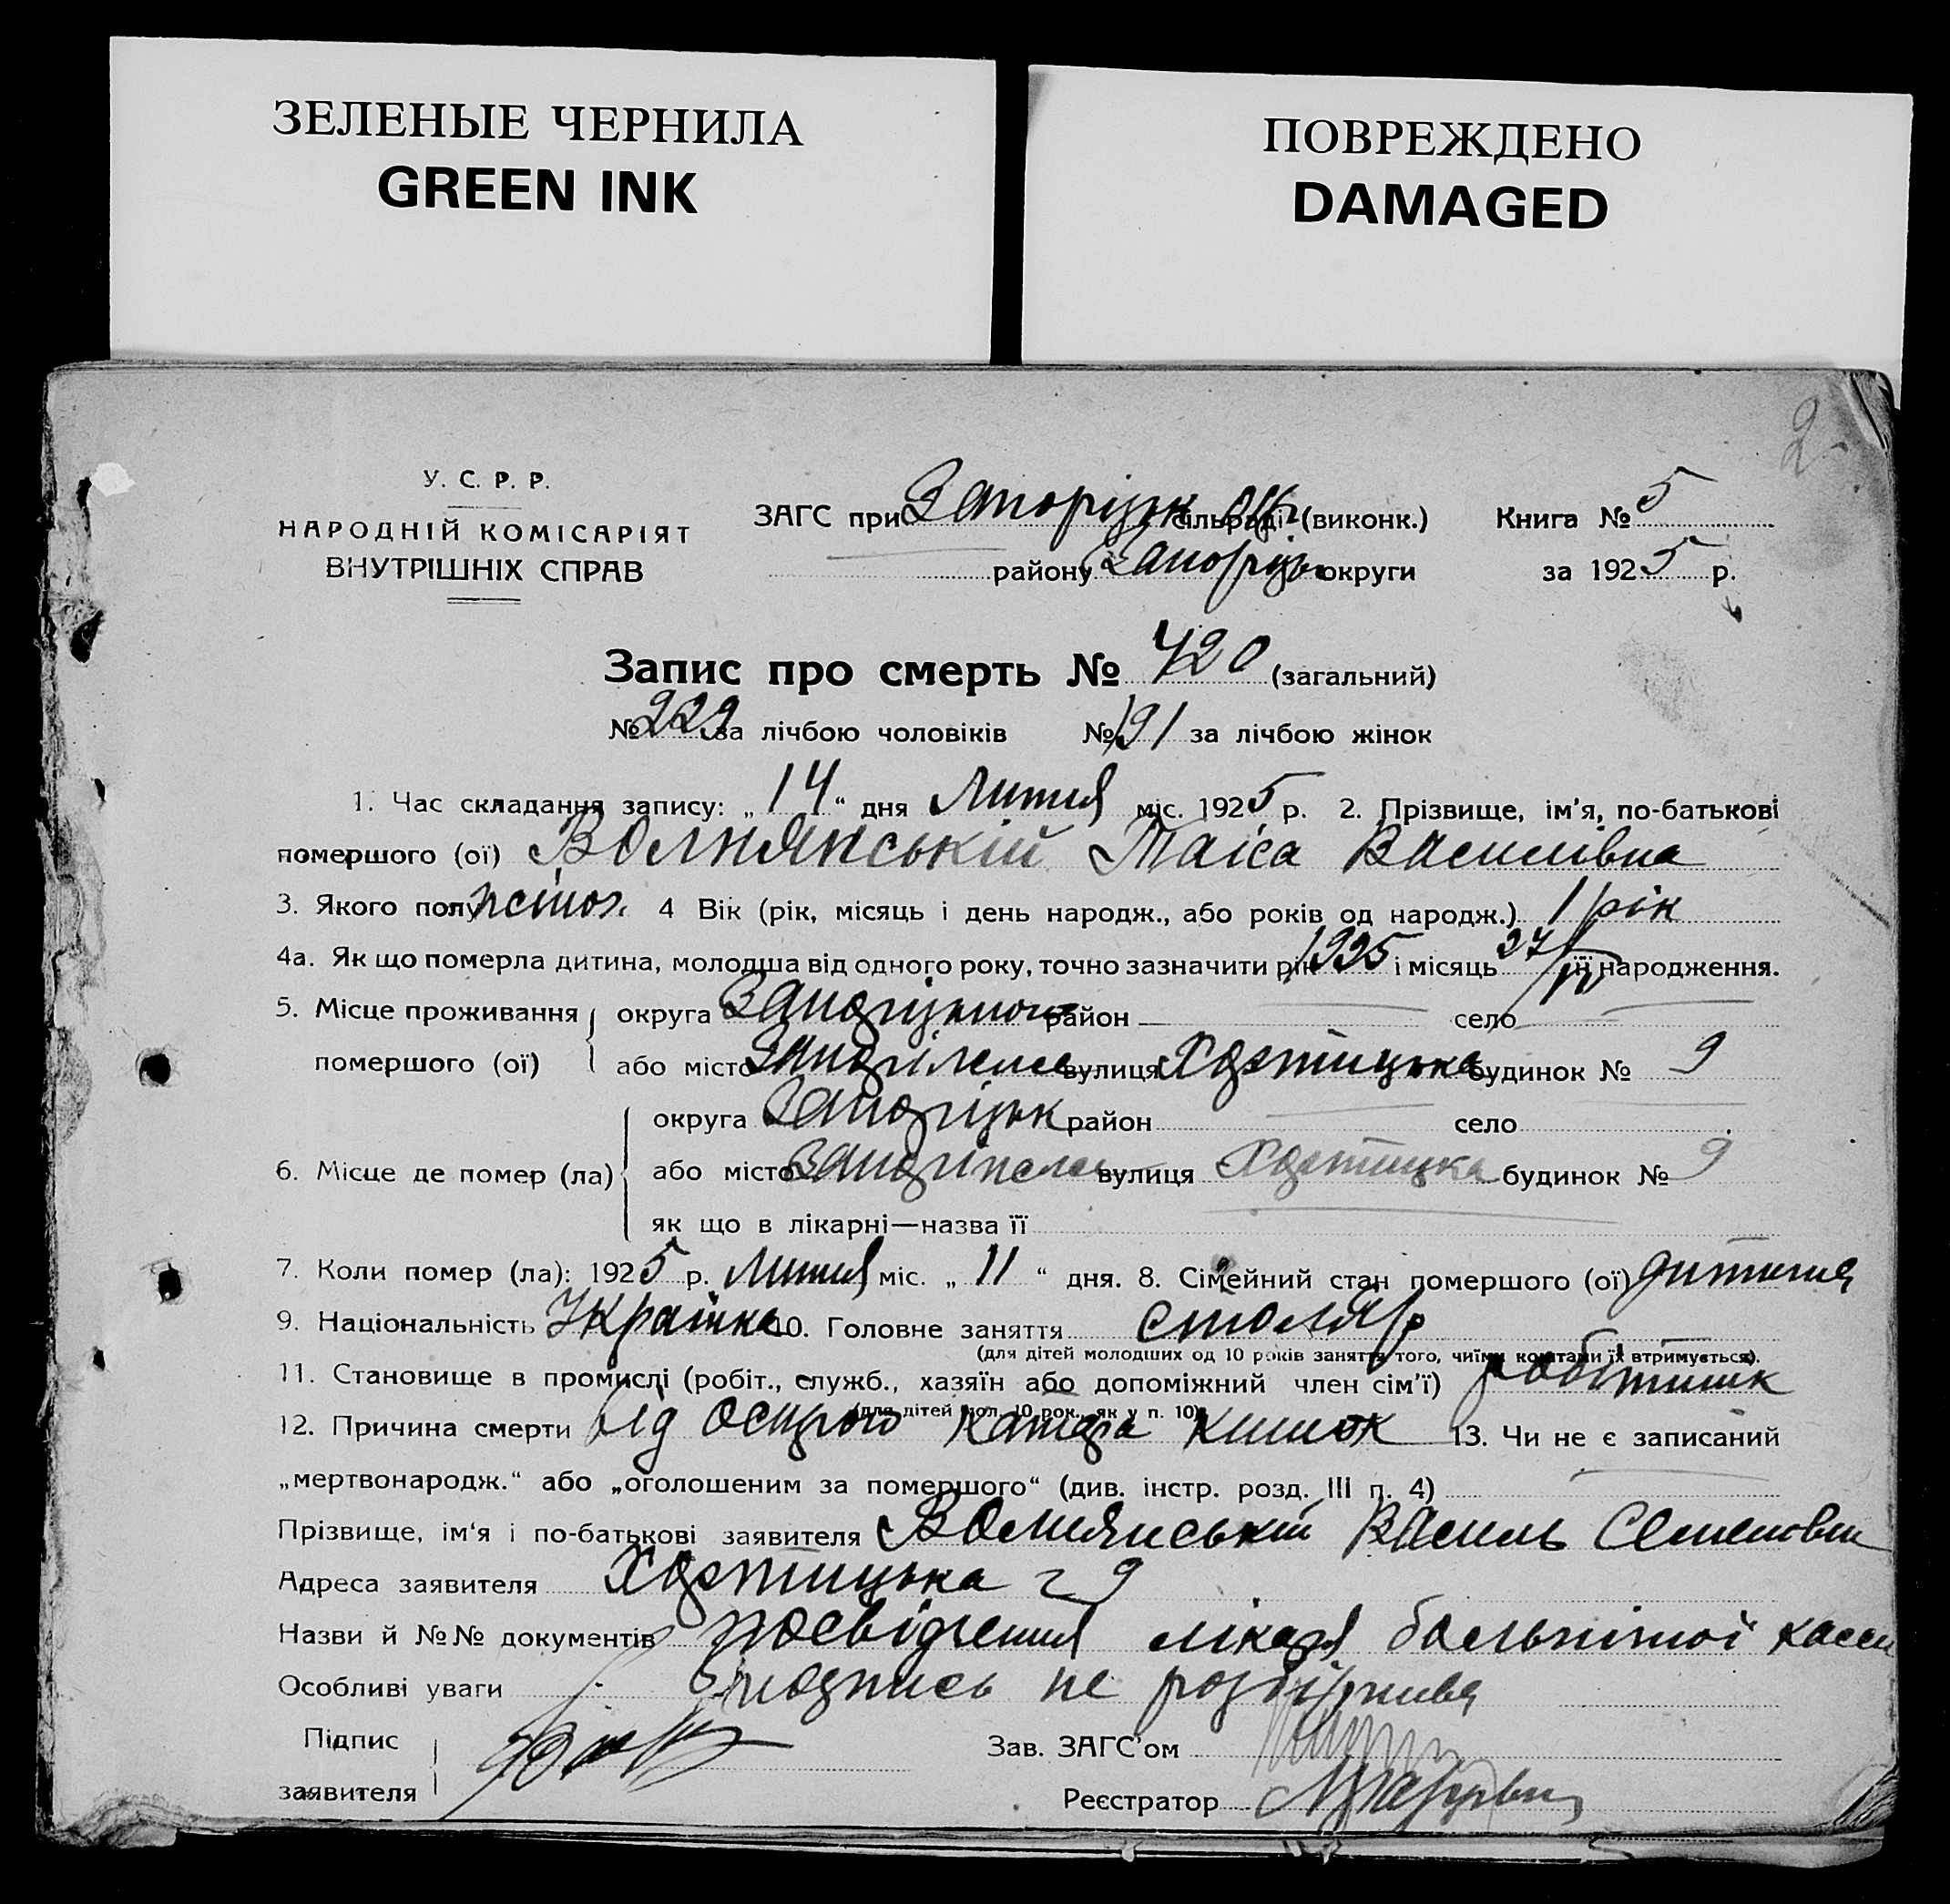 ЗЕЛЕНЫЕ ЧЕРНИЛА
GREEN INK
ПОВРЕЖДЕНО
DAMAGED
2
У. С. Р. Р.
НАРОДНІЙ КОМІСАРІЯТ
ВНУТРІШНІХ СПРАВ
ЗАГС при Запоріжк сільраді (виконк.) Книга № 5
району Запоріжк округи за 1925 р.
Запис про смерть № 420 (загальний)
№ 229 за лічбою чоловіків № 191 за лічбою жінок
1. Час складання запису: „14“ дня Липня міс. 1925 р. 2. Прізвище, ім'я, по-батькові
помершого (ої) Волнянській Таіса Василівна
3. Якого полу жіноч. 4 Вік (рік, місяць і день народж., або років од народж.) 1 рік
4а. Як що померла дитина, молодша від одного року, точно зазначити рік 1925 і місяць 27/ її народження.
5. Місце проживання помершого (ої) округа район село
або місто Запоріжжя вулиця Хортицька будинок № 9
6. Місце де помер (ла) округа Запоріжк район село
або місто Запоріжжя вулиця Хортицка будинок № 9
як що в лікарні—назва її
7. Коли помер (ла): 1925 р. Липня міс. „11“ дня. 8. Сімейний стан помершого (ої) дитина
9. Національність Українка 10. Головне заняття столяр
(для дітей молодших од 10 років заняття того, чиїми коштами їх втримується).
11. Становище в промислі (робіт., служб., хазяїн або допоміжний член сім'ї) робітник
(для дітей мол. 10 рок., як у п. 10)
12. Причина смерти Від острого катара кишок 13. Чи не є записаний
„мертвонародж.“ або „оголошеним за помершого“ (див. інстр. розд. III п. 4)
Прізвище, ім'я і по-батькові заявителя Волнянській Василь Семенович
Адреса заявителя Хортицька 9
Назви й №№ документів посвідчення лікаря больнічної касси
Особливі уваги подпись не розбірчива
Підпис
заявителя
Зав. ЗАГС'ом
Реєстратор